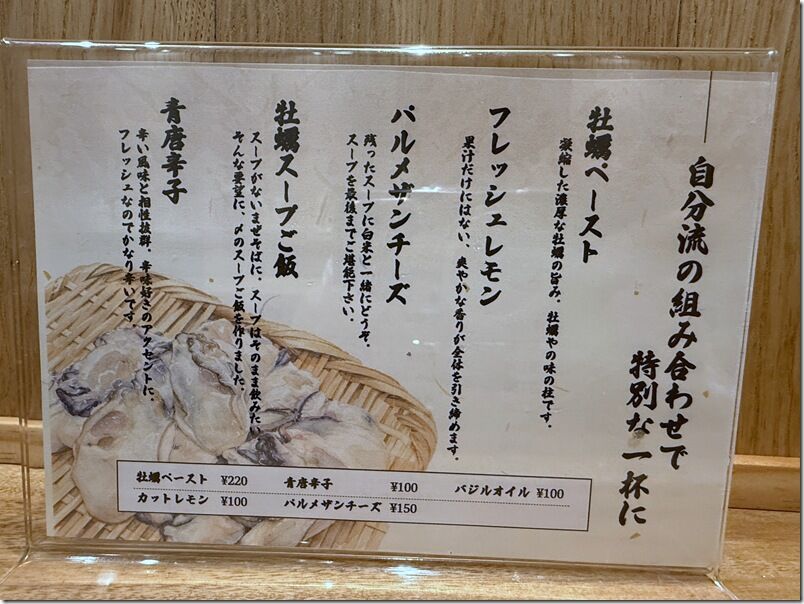 自分流の組み合わせで
特別な一杯に
牡蠣ペースト
凝縮した濃厚な牡蠣の旨み。牡蠣やの味の柱です。
フレッシュレモン
果汁だけにはない、爽やかな香りが全体を引き締めます。
パルメザンチーズ
残ったスープに白米と一緒にどうぞ。
スープを最後までご堪能下さい。
牡蠣スープご飯
スープがないまぜそばに、スープはそのまま飲みたい
そんな要望に、〆のスープご飯を作りました。
青唐辛子
辛い風味と相性抜群。辛味好きのアクセントに。
フレッシュなのでかなり辛いです。
牡蠣ペースト ¥220 青唐辛子 ¥100 バジルオイル ¥100
カットレモン ¥100 パルメザンチーズ ¥150